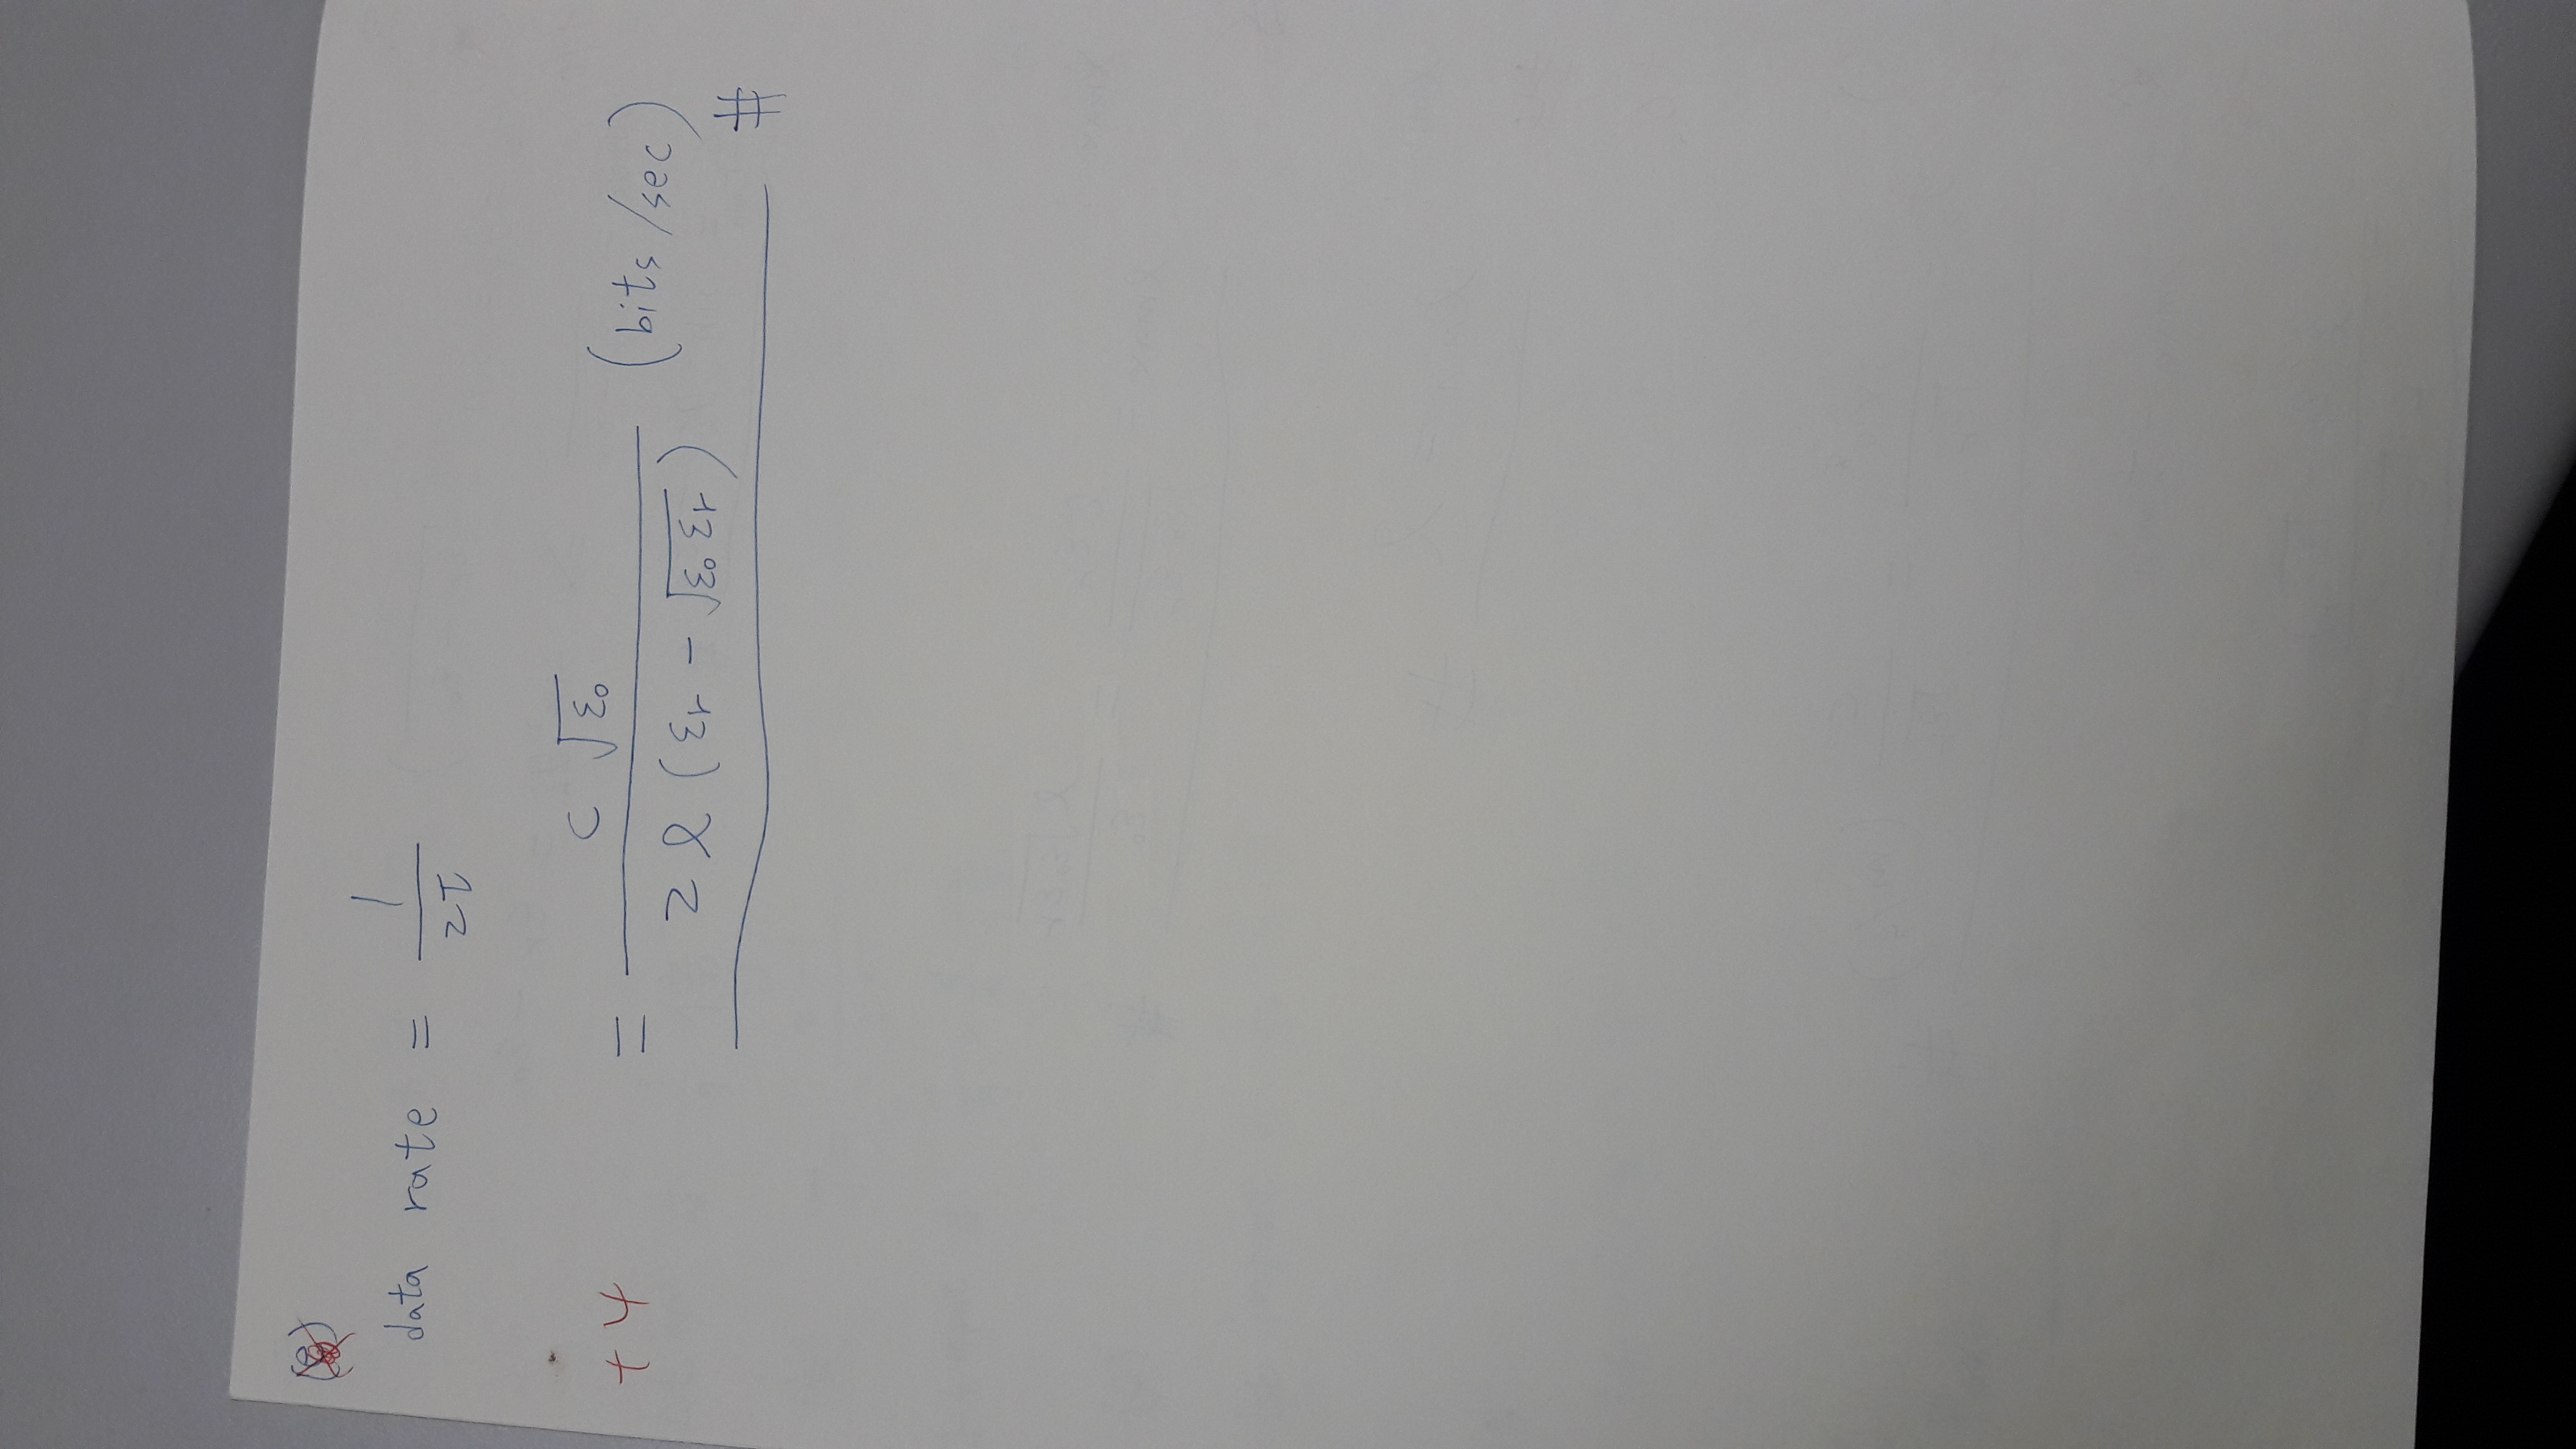 data rate = 1 / 2τ
+4 = c √ε₀ / 2 l (εr - √ε₀ εr) (bits/sec) #